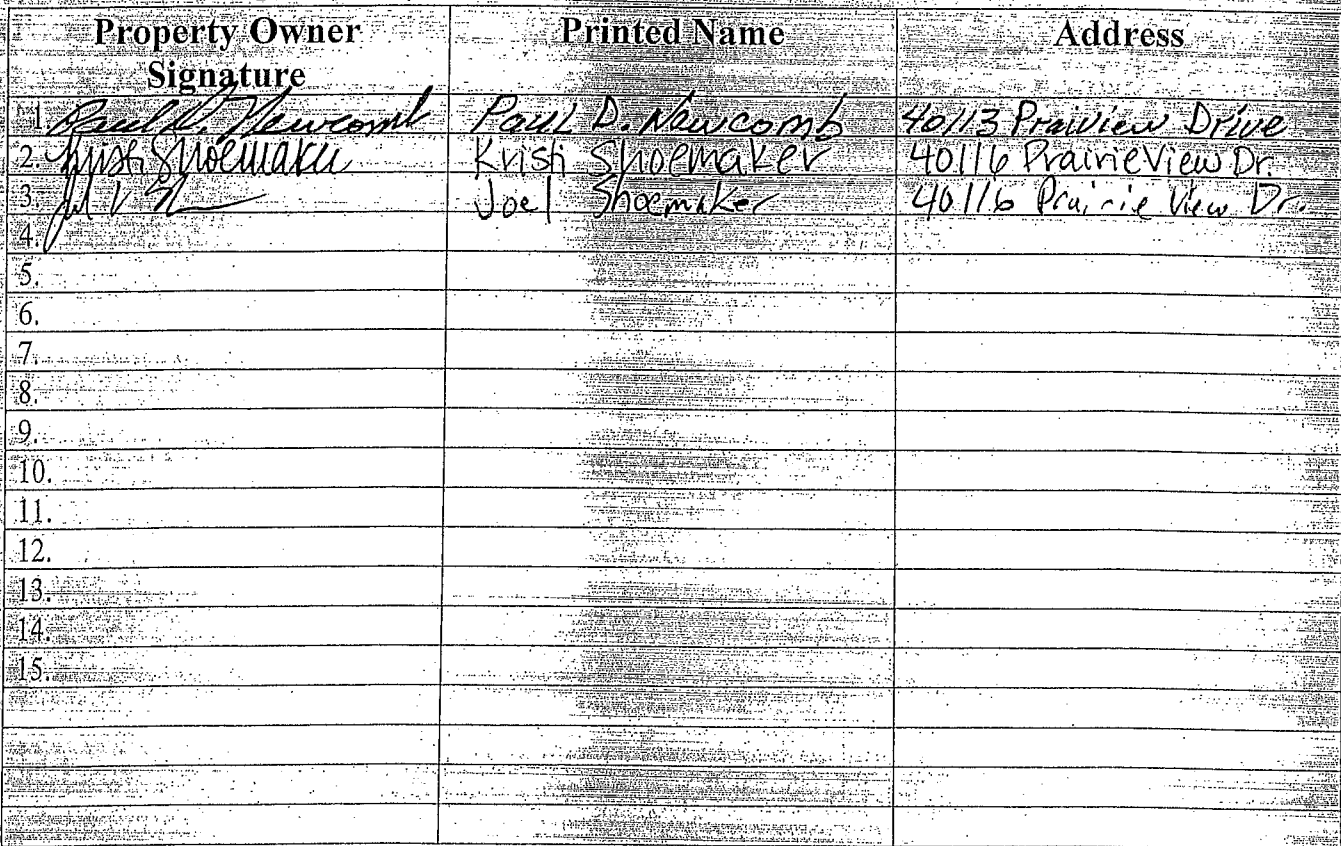 Property Owner Signature Printed Name Address
1. Paul D. Newcomb Paul D. Newcomb 40113 Praiview Drive
2. Kristi Shoemaker Kristi Shoemaker 40116 Prairie View Dr.
3. Joel Shoemaker 40116 Prairie View Dr.
4.
5.
6.
7.
8.
9.
10.
11.
12.
13.
14.
15.